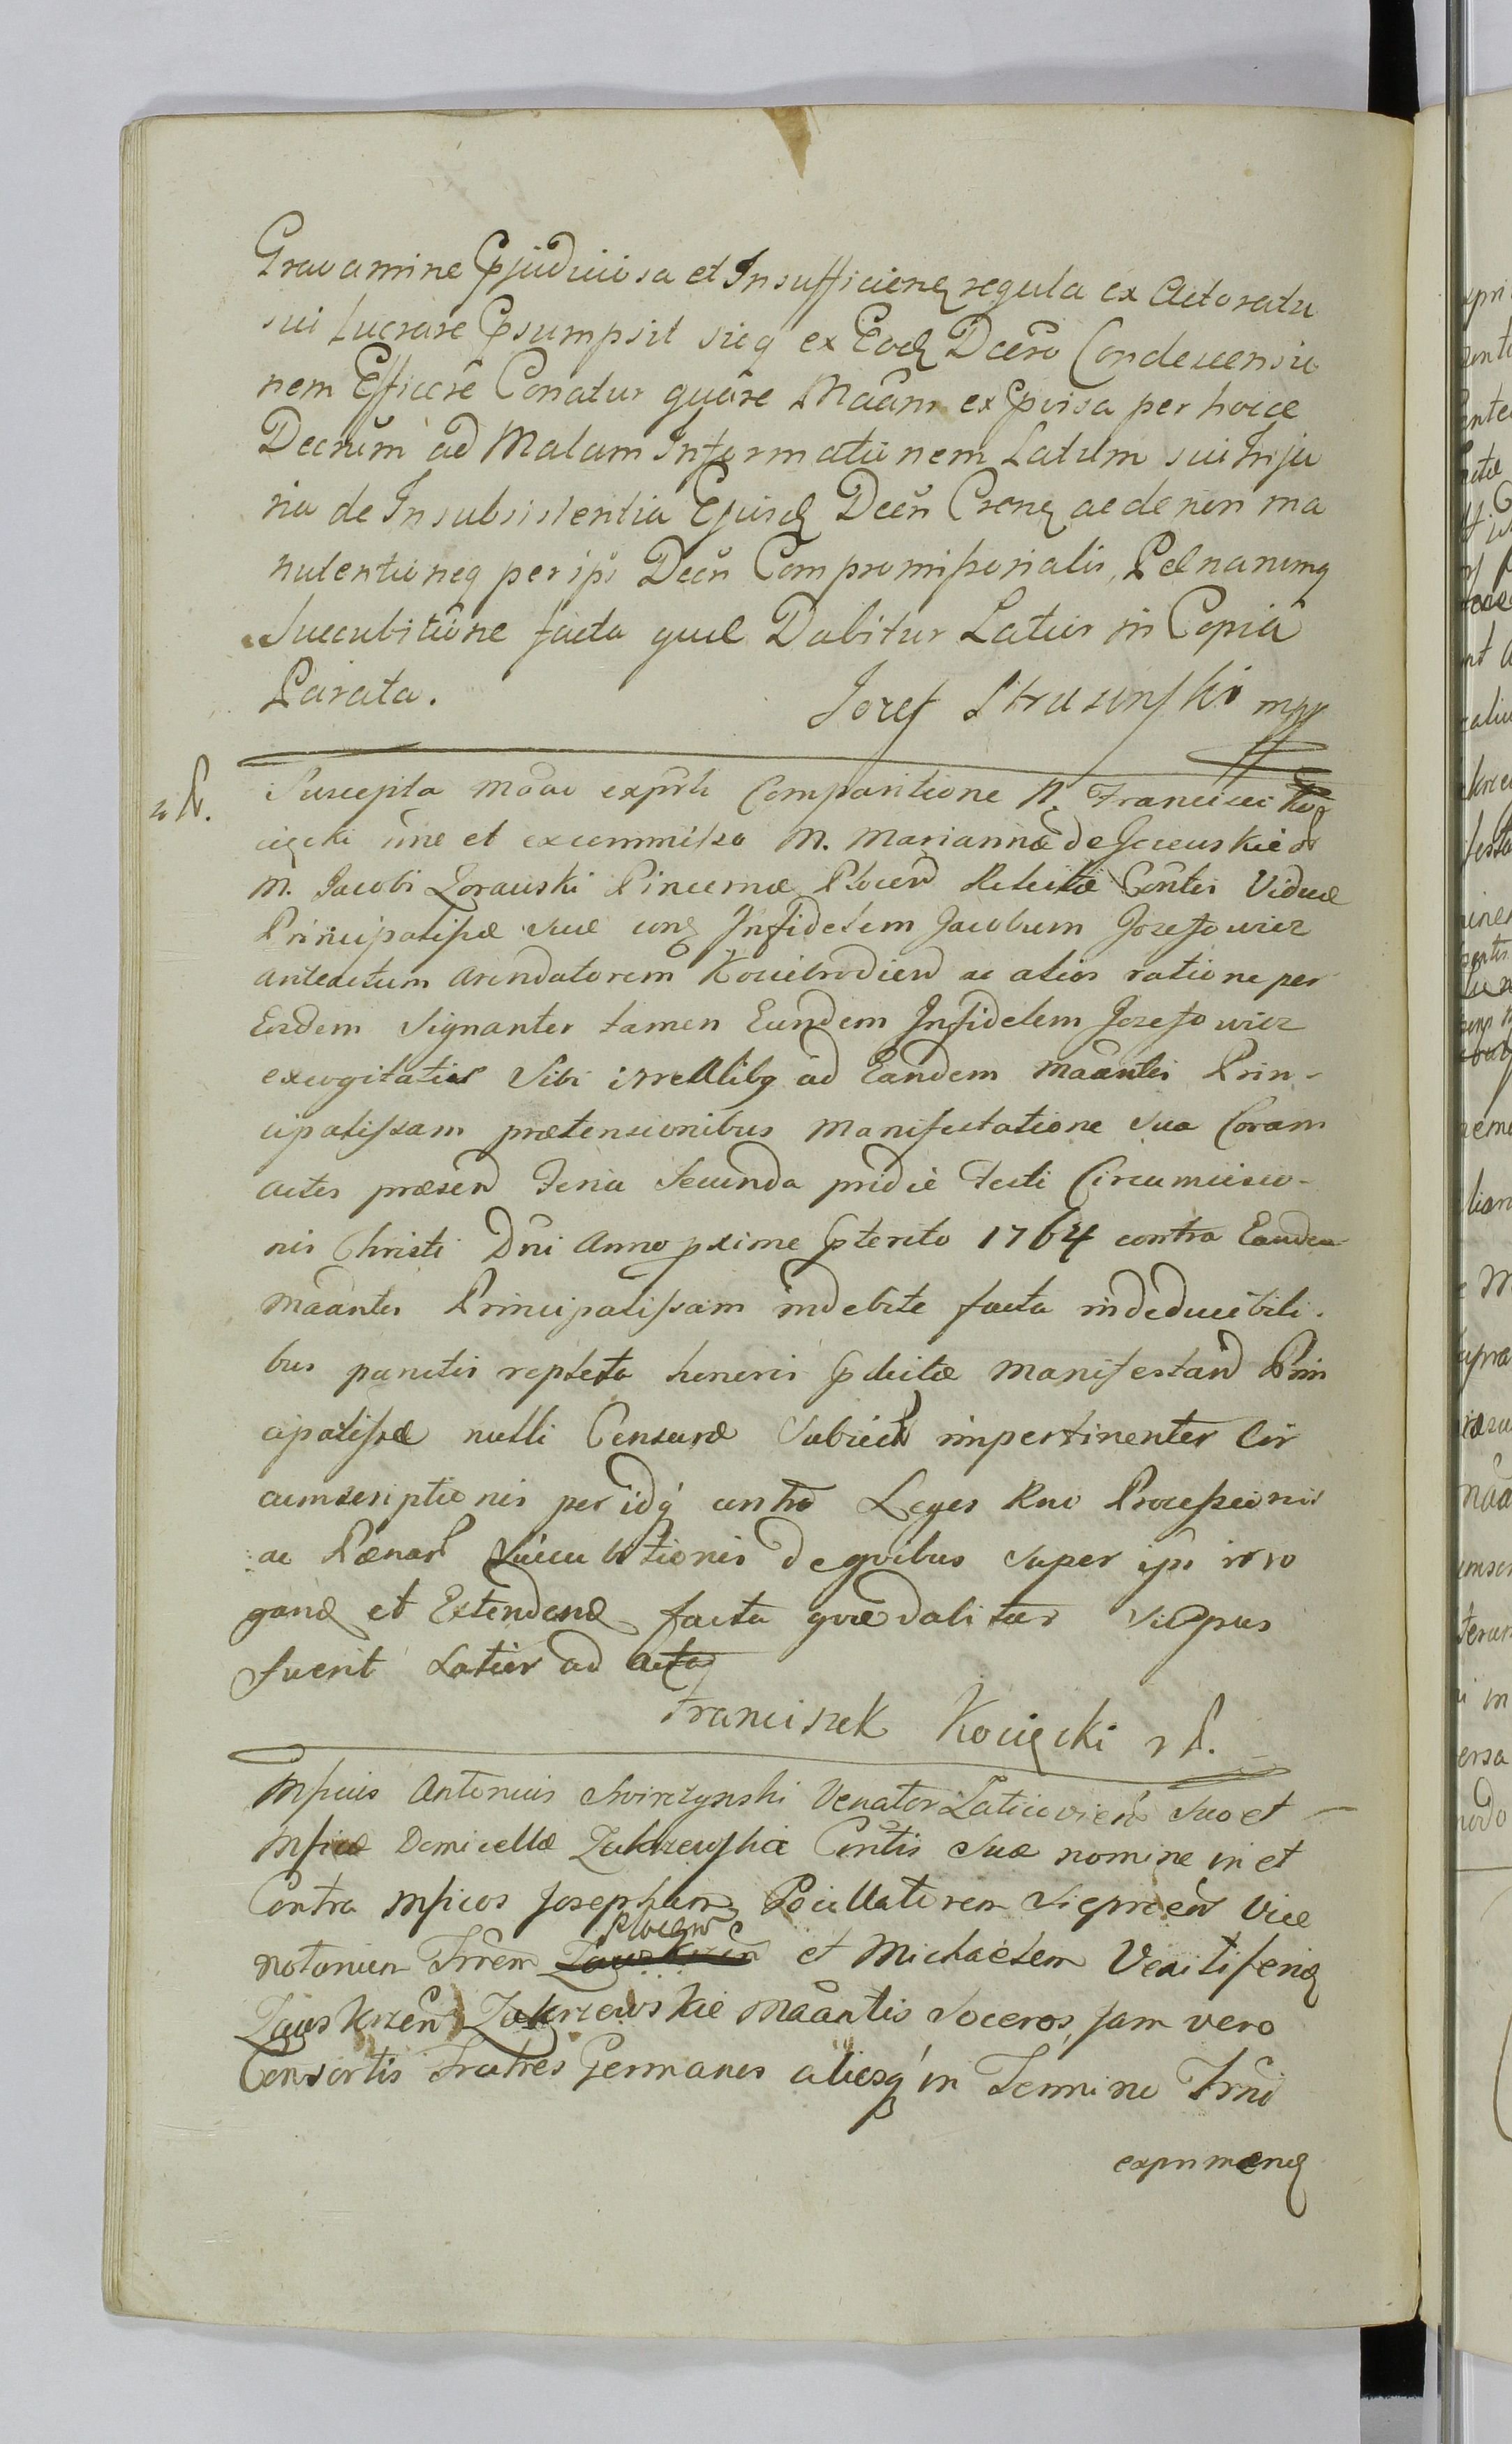 Gravamine Pjudiciosa et Insufficienq regula ex Actoratu
sui Lucrare Psumpsit sicq ex Eodq Decro Condescensio
nem Efficere Conatur quare Maans ex Pvisa per hocce
Decrum ad Malam Informationem Latum sui Inju
ria de Insubsistentia Ejusdq Decri Cronq ac de non ma
nutentioneq per ipō Decri Compromissorialis, Pœnarumq
Succubitione facta quæ Dabitur Latior in Copia
Parata.
Jozef Strusinski mpp
Suscepta moao exprti Comparitione N. Francisci Ko
cięcki sine et excommisso M. Mariannæ de Gocuskie
M. Jacobi Zorauski Pincernæ Plocen Relictæ Contis Viduæ
Principalissæ suæ conq Infidelem Jacobum Jozefowicz
anteactum arendatorem Kocibrodien ac alios ratione per
Eosdem signanter tamen Eundem Infidelem Jozefowicz
excogitatis sibi irrellibq ad Eandem maantis Prin-
cipalissam prætensionibus Manifestatione sua Coram
actis præsen Feria Secunda pridie Festi Circumcisio-
nis Christi Dni Anno pxime Pterito 1764 contra Eandem
maantis Principalissam indebite facta indeducibili-
bus punctis repleta honoris Pdictæ manifestan Prin
cipalissæ nulli Censuræ Subiect impertinenter Cir
cumscriptionis per idq contra Leges Rni Processionis
ac Pænar Succubitionis de quibus super ipō irro
ganq et Extendenq facta quæ dabitur si opus
fuerit Latior ad acta
Franciszek Kocięcki r P.
Mficus Antonius Swirczynski Venator Laticovien Suo et
Mficæ Domicellæ Zakrzewskie Contis Suæ nomine in et
Contra Mficos Josephum Pocillatorem Siepraen Vice
notarium Trrem Plocen et Michaelem Vexiliferiq
Zawskrzen Zakrzewskie Maantis Soceros, Jam vero
Consortis Fratres Germanos aliosq in Termino Trni
exprimenq